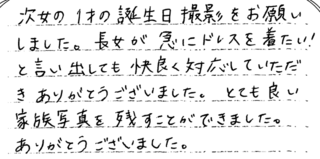 次女の1才の誕生日撮影をお願い
しました。長女が急にドレスを着たい!
と言い出しても快良く対応していただ
きありがとうございました。とても良い
家族写真を残すことができました。
ありがとうございました。